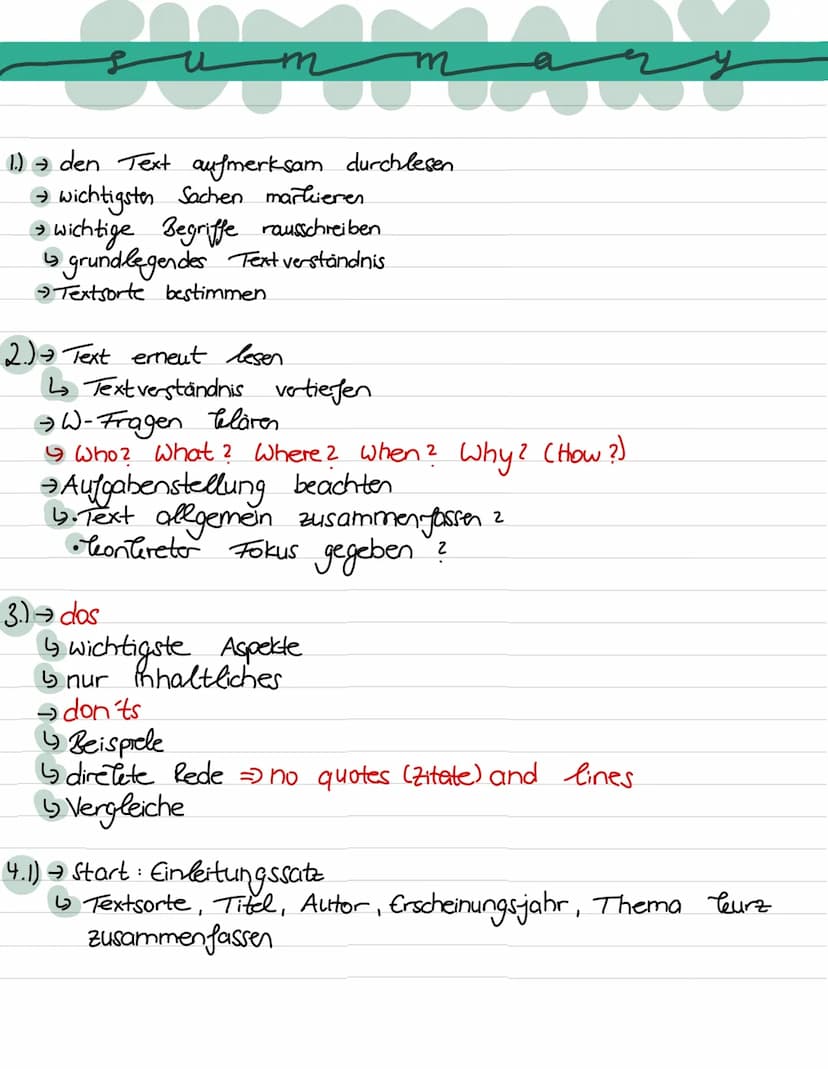 SUMMARY
summary
1.) → den Text aufmerksam durchlesen
→ wichtigsten Sachen markieren
→ wichtige Begriffe rausschreiben
↳ grundlegendes Textverständnis
→ Textsorte bestimmen
2.) → Text erneut lesen
↳ Textverständnis vertiefen
→ W-Fragen klären
↳ Who? What? Where? When? Why? (How?)
→ Aufgabenstellung beachten
↳ • Text allgemein zusammenfassen?
• konkreter Fokus gegeben?
3.) → dos
↳ wichtigste Aspekte
↳ nur inhaltliches
→ don'ts
↳ Beispiele
↳ direkte Rede ⇒ no quotes (Zitate) and lines
↳ Vergleiche
4.1) → Start: Einleitungssatz
↳ Textsorte, Titel, Autor, Erscheinungsjahr, Thema kurz
zusammenfassen